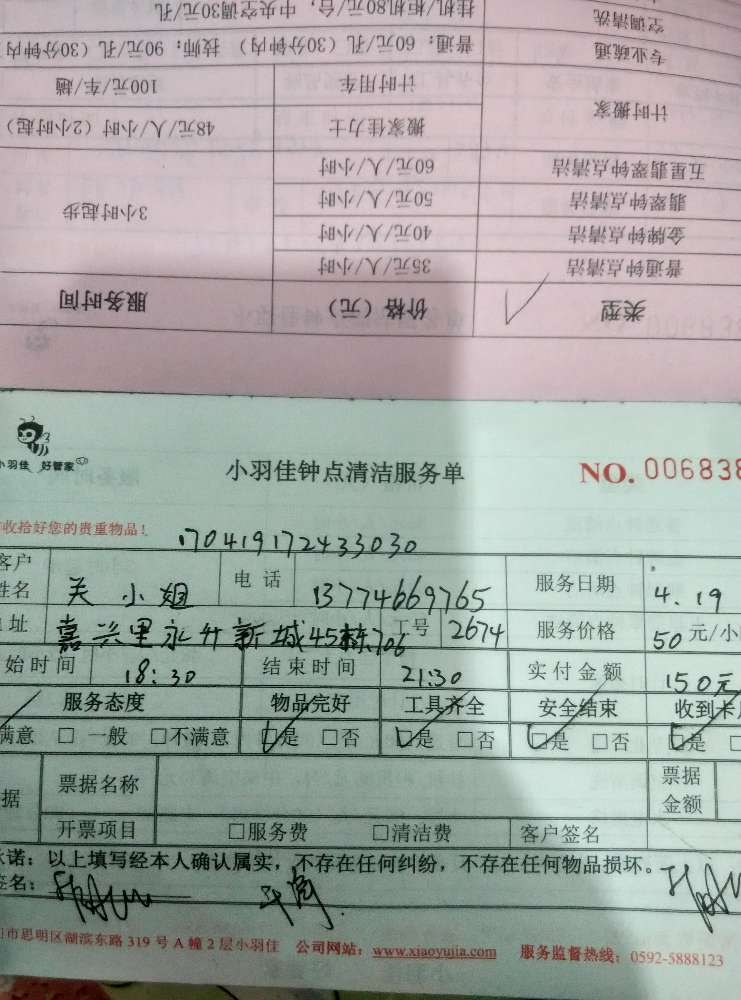 空调清洗 挂机/柜机80元/台，中央空调30元/孔
专业疏通 普通：60元/孔（30分钟内） 技师：90元/孔（30分钟内
计时搬家 计时用车 100元/车/趟
搬家佳力士 48元/人/小时（2小时起）
五星翡翠钟点清洁 60元/人/小时
翡翠钟点清洁 50元/人/小时 3小时起步
金牌钟点清洁 40元/人/小时
普通钟点清洁 35元/人/小时
类型 价格（元） 服务时间
小羽佳 好管家
小羽佳钟点清洁服务单 NO. 006838
收拾好您的贵重物品！
170419172433030
客户姓名 关小姐 电话 13774669765 服务日期 4.19
址 嘉兴里永升新城45栋706 工号 2674 服务价格 50元/小
始时间 18:30 结束时间 21:30 实付金额 150元
服务态度 物品完好 工具齐全 安全结束 收到卡
满意 □ 一般 □不满意 □是 □否 □是 □否 □是 □否 □是 □
据 票据名称 票据金额
开票项目 □服务费 □清洁费 客户签名
承诺：以上填写经本人确认属实，不存在任何纠纷，不存在任何物品损坏。
签名：
市思明区湖滨东路 319 号 A 幢 2 层小羽佳 公司网站：www.xiaoyujia.com 服务监督热线：0592-5888123